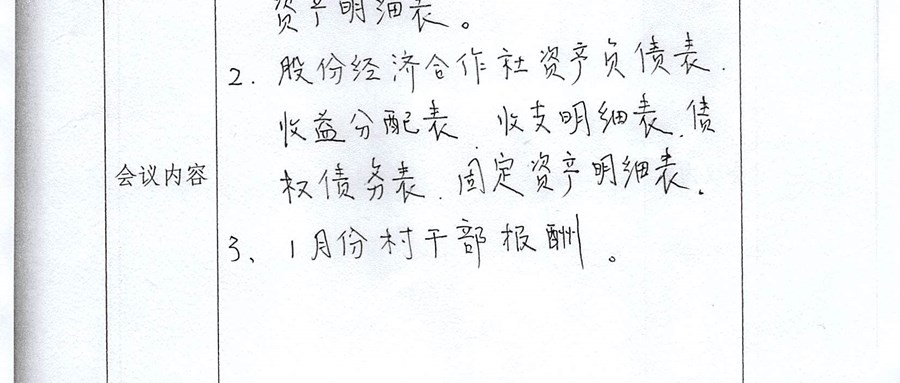 资产明细表。
2. 股份经济合作社资产负债表、
收益分配表、收支明细表、债
会议内容
权债务表、固定资产明细表。
3、1月份村干部报酬。